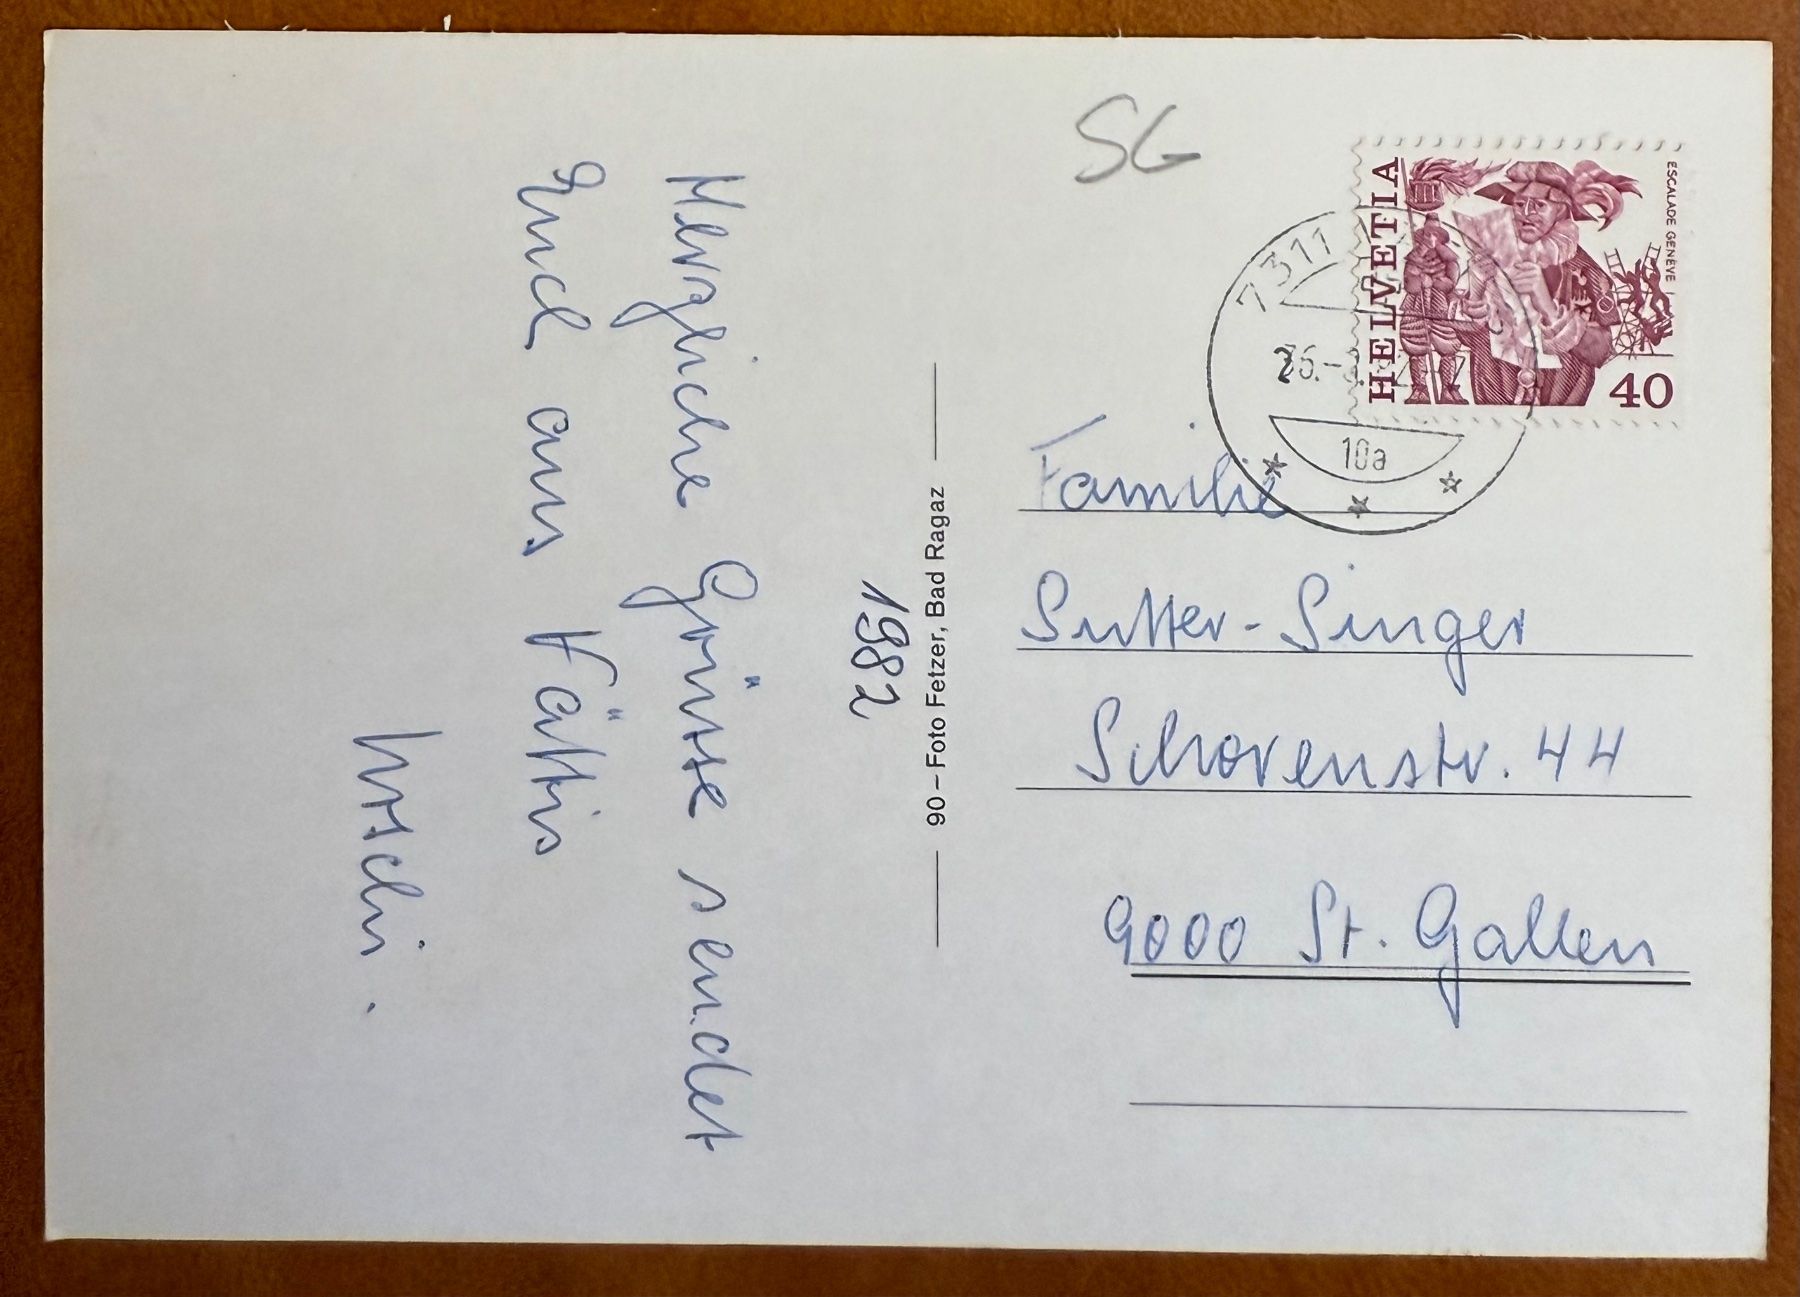 Herzliche Grüsse sendet
Euch aus Vättis
Uschi.
1982
90 – Foto Fetzer, Bad Ragaz
SG
HELVETIA
ESCALADE GENÈVE
40
7311
10a
Familie
Sutter-Singer
Schorenstr. 44
9000 St. Gallen